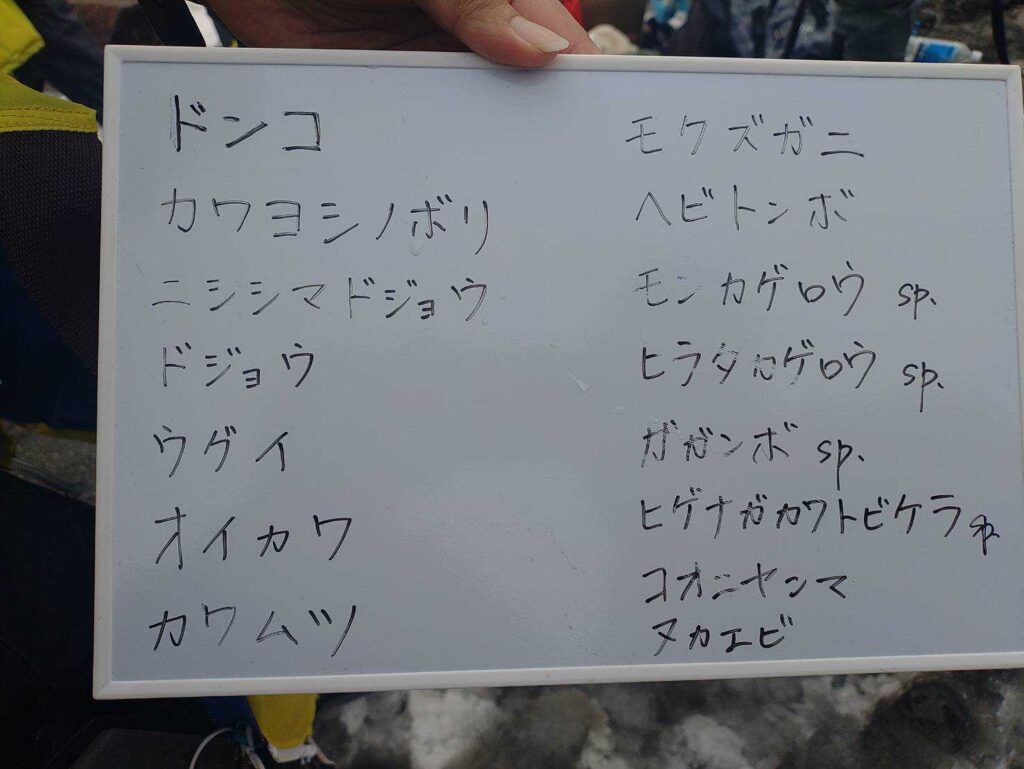 ドンコ
カワヨシノボリ
ニシシマドジョウ
ドジョウ
ウグイ
オイカワ
カワムツ
モクズガニ
ヘビトンボ
モンカゲロウ sp.
ヒラタカゲロウ sp.
ガガンボ sp.
ヒゲナガカワトビケラ sp.
コオニヤンマ
ヌカエビ